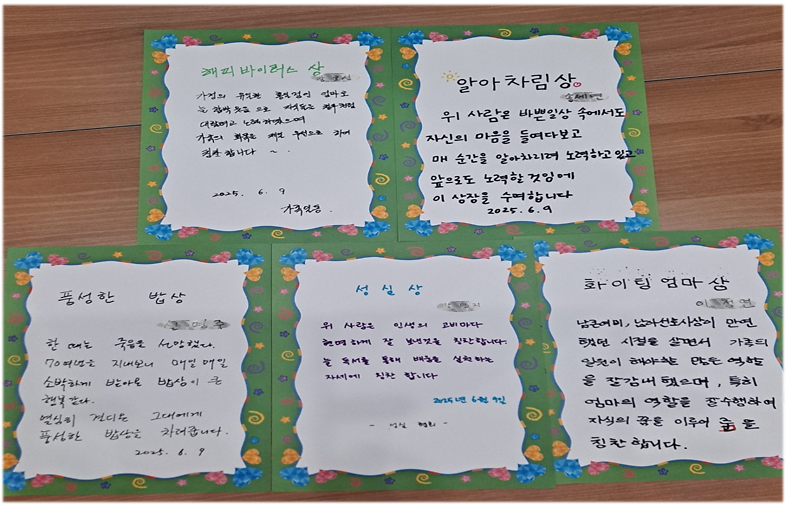 해피바이러스 상
가정의
늘 웃음으로
대하려고 노력하였으며
가족의 화목을 우선으로 하여
칭찬합니다 ~.
2025. 6. 9
가족일동
알아차림상
위 사람은 바쁜일상 속에서도
자신의 마음을 들여다보고
매 순간을 알아차리려 노력하고 있고
앞으로도 노력할 것임에
이 상장을 수여합니다
2025. 6. 9
풍성한 밥상
한 때는 죽음을 선망했다.
70여년을 지내보니 매일 매일
소박하게 받아온 밥상이 큰
행복같다.
열심히 견디온 그대에게
풍성한 밥상을 차려줍니다.
2025. 6. 9
성실상
위 사람은 인생의 고비마다
현명하게 잘 보냈것을 칭찬합니다.
늘 독서를 통해 배움을 실천하는
자세에 칭찬 합니다
2025년 6월 9일
- 성실 협회 -
화이팅 엄마상
남존여비, 남아선호사상이 만연
했던 시절을 살면서 가족의
일원이 해야할 많은 역할
을 잘감내 했으며, 특히
엄마의 역할을 잘수행하여
자식의 꿈을 이루어 줌을
칭찬합니다.